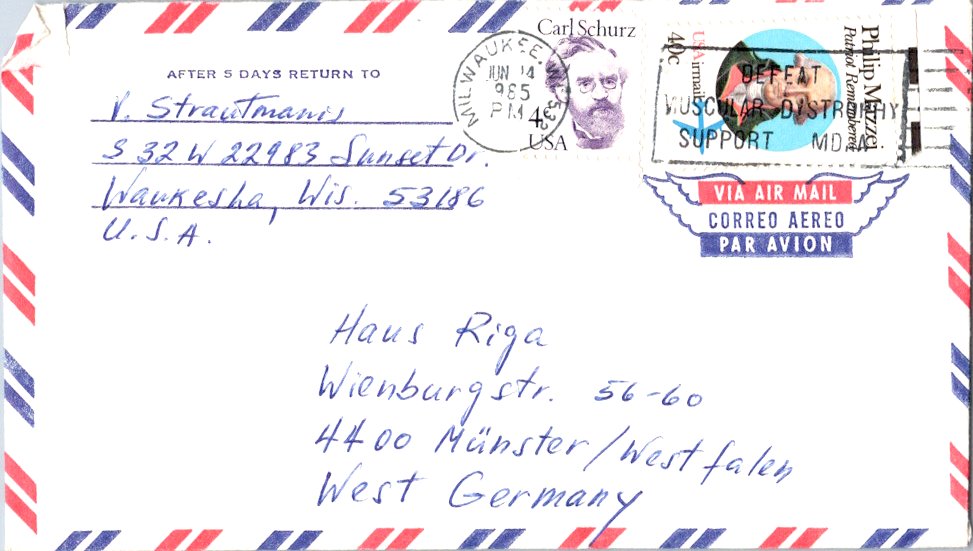 AFTER 5 DAYS RETURN TO
V. Strautmanis
S 32 W 22983 Sunset Dr.
Waukesha, Wis. 53186
U.S.A.
Carl Schurz
4c
USA
MILWAUKEE, WI 532
JUN 14
1985
PM
Philip Mazzei
Patriot Remembered
USA airmail
40c
DEFEAT
MUSCULAR DYSTROPHY
SUPPORT MDA
VIA AIR MAIL
CORREO AEREO
PAR AVION
Haus Riga
Wienburgstr. 56-60
4400 Münster/Westfalen
West Germany